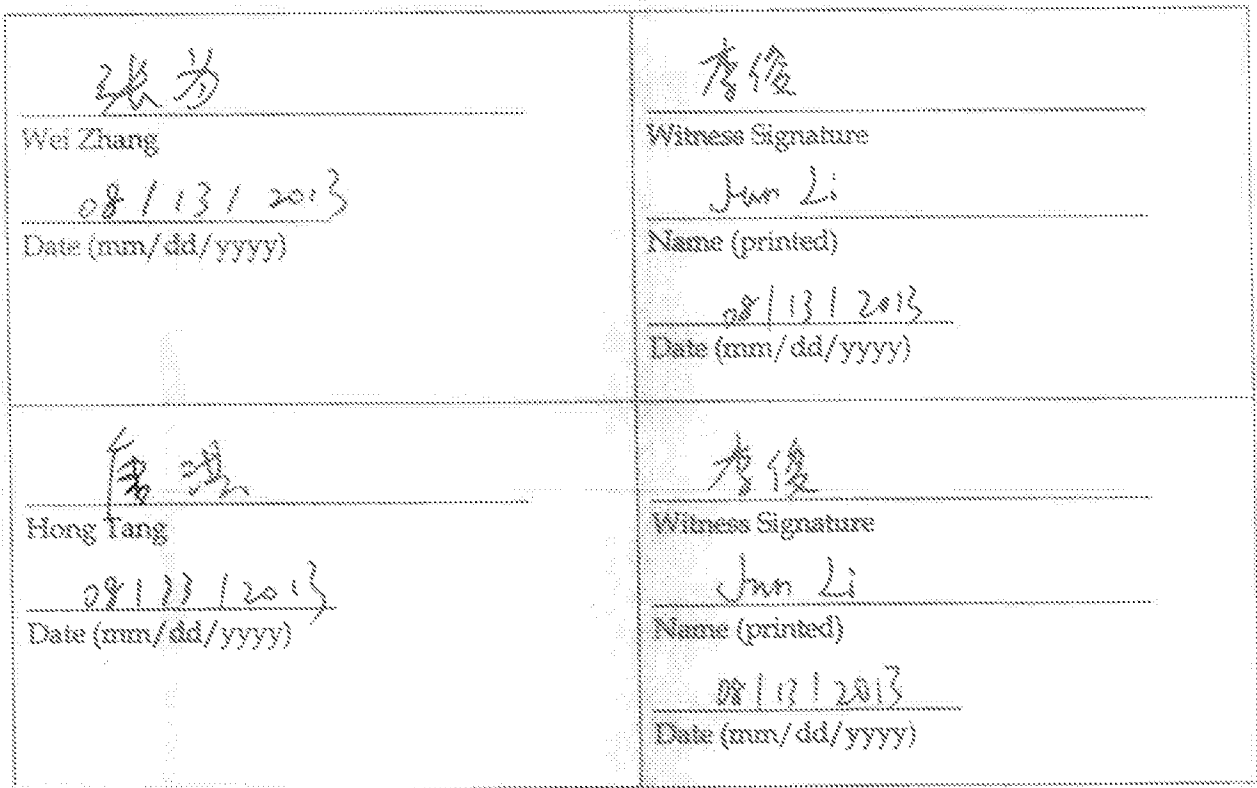 张为
Wei Zhang
08/13/2013
Date (mm/dd/yyyy)
李俊
Witness Signature
Jun Li
Name (printed)
08/13/2013
Date (mm/dd/yyyy)
唐洪
Hong Tang
08/13/2013
Date (mm/dd/yyyy)
李俊
Witness Signature
Jun Li
Name (printed)
08/13/2013
Date (mm/dd/yyyy)